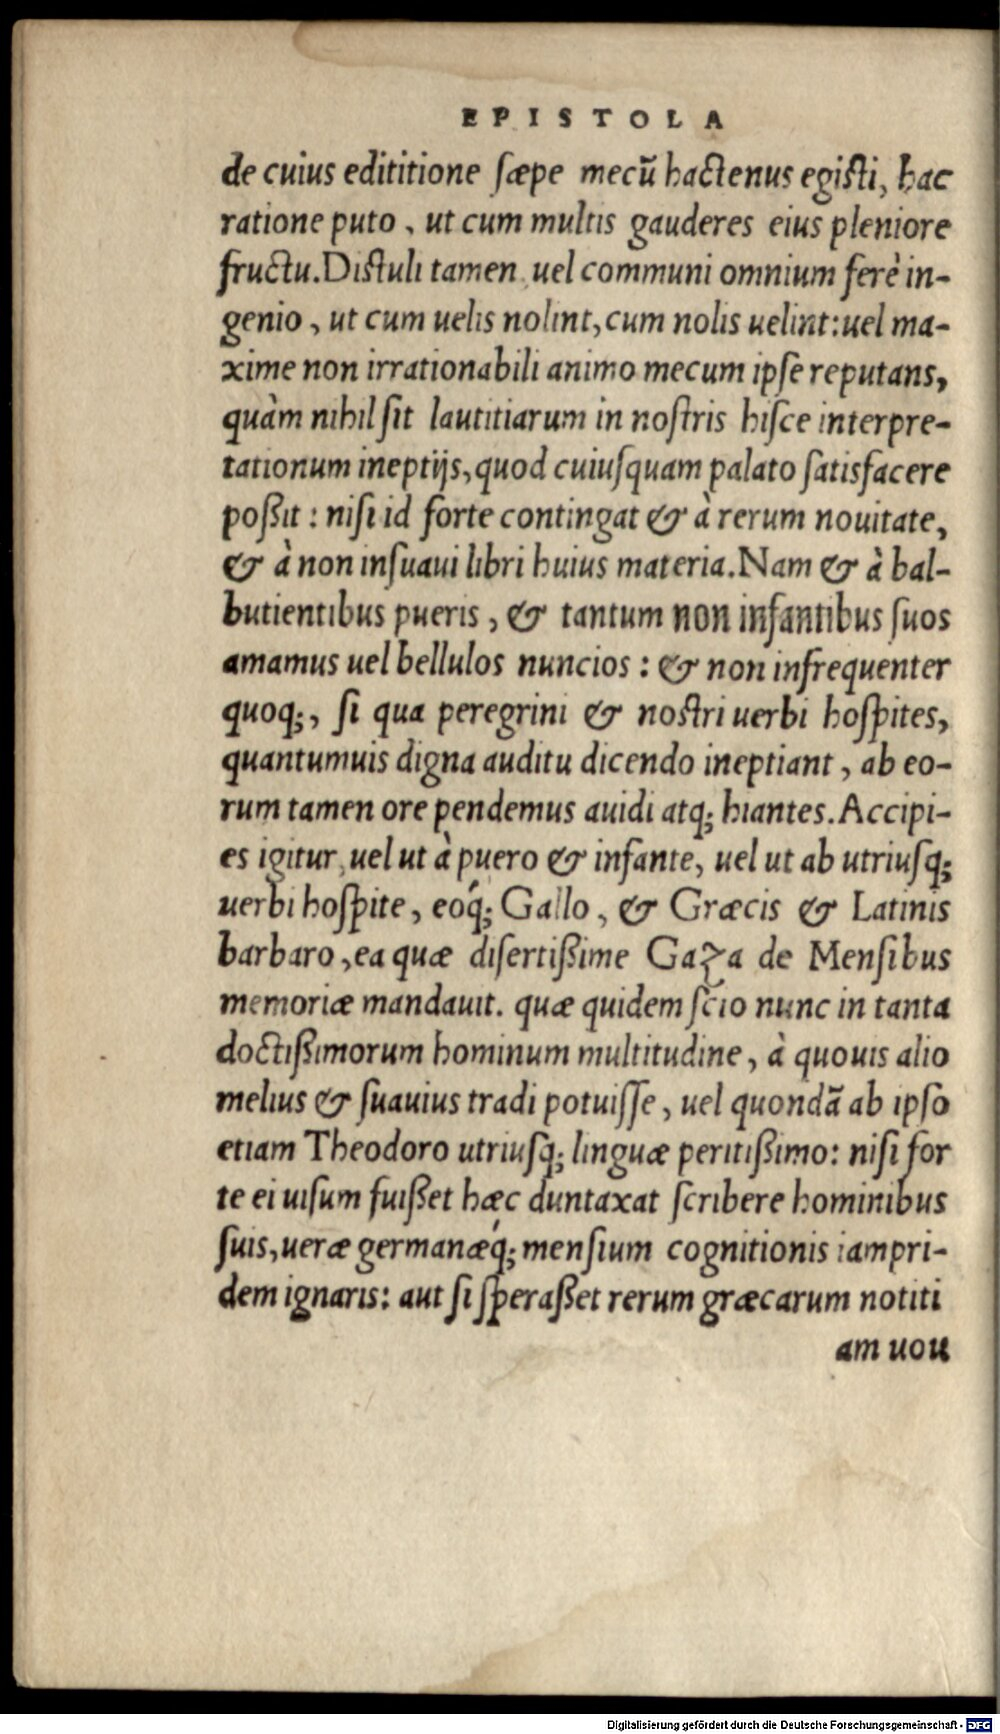 EPISTOLA
de cuius edititione sæpe mecū hactenus egisti, hac
ratione puto, ut cum multis gauderes eius pleniore
fructu. Distuli tamen uel communi omnium ferè in-
genio, ut cum uelis nolint, cum nolis uelint: uel ma-
xime non irrationabili animo mecum ipse reputans,
quàm nihil sit lautitiarum in nostris hisce interpre-
tationum ineptijs, quod cuiusquam palato satisfacere
poßit: nisi id forte contingat & à rerum nouitate,
& à non insuaui libri huius materia. Nam & à bal-
butientibus pueris, & tantum non infantibus suos
amamus uel bellulos nuncios: & non infrequenter
quoq;, si qua peregrini & nostri uerbi hospites,
quantumuis digna auditu dicendo ineptiant, ab eo-
rum tamen ore pendemus auidi atq; hiantes. Accipi-
es igitur, uel ut à puero & infante, uel ut ab utriusq;
uerbi hospite, eoq́; Gallo, & Græcis & Latinis
barbaro, ea quæ disertißime Gaza de Mensibus
memoriæ mandauit. quæ quidem scio nunc in tanta
doctißimorum hominum multitudine, à quouis alio
melius & suauius tradi potuisse, uel quondā ab ipso
etiam Theodoro utriusq; linguæ peritißimo: nisi for
te ei uisum fuißet hæc duntaxat scribere hominibus
suis, ueræ germanæq́; mensium cognitionis iampri-
dem ignaris: aut si speraßet rerum græcarum notiti
am uou
Digitalisierung gefördert durch die Deutsche Forschungsgemeinschaft - DFG